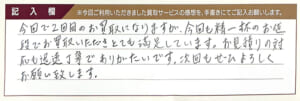 記入欄
※今回ご利用いただきました貴なサービスの感想を、手書きにてご記入お願いします。
今回で2回目のお買取になりますが、今回も精一杯のお値
段でお買取いただきとても満足しています。お見積りの対
応も迅速丁寧でありがたいです。次回もぜひよろしく
お願い致します。